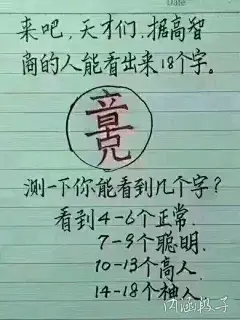 Date
来吧,天才们,据高智
商的人能看出来18个字。
测一下你能看到几个字?
看到4-6个正常.
7-9个聪明.
10-13个高人.
14-18个神人
内涵段子